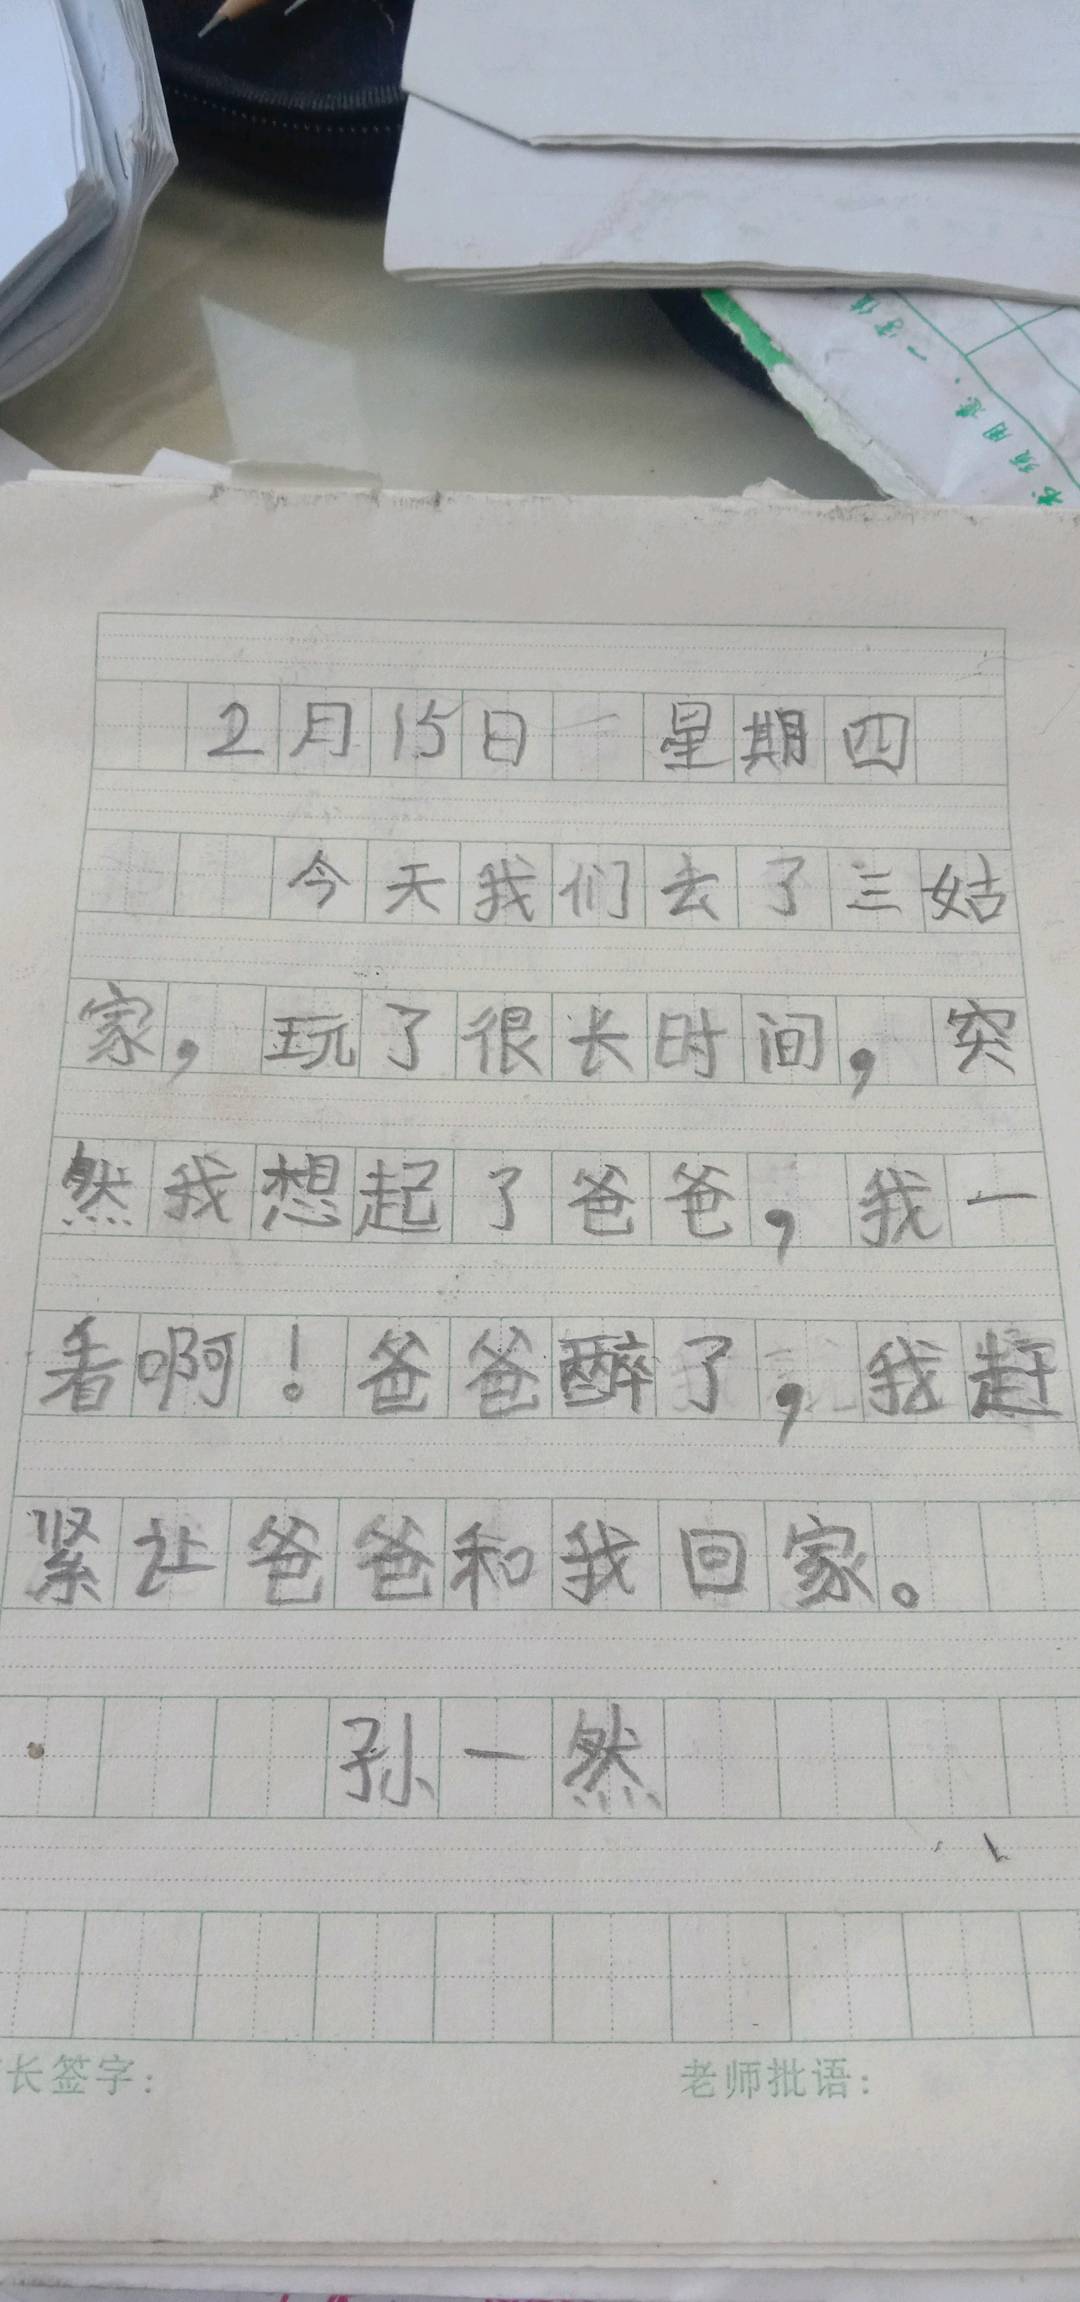 2月15日 星期四
今天我们去了三姑
家，玩了很长时间，突
然我想起了爸爸，我一
看啊！爸爸醉了，我赶
紧让爸爸和我回家。
孙一然
长签字：
老师批语：